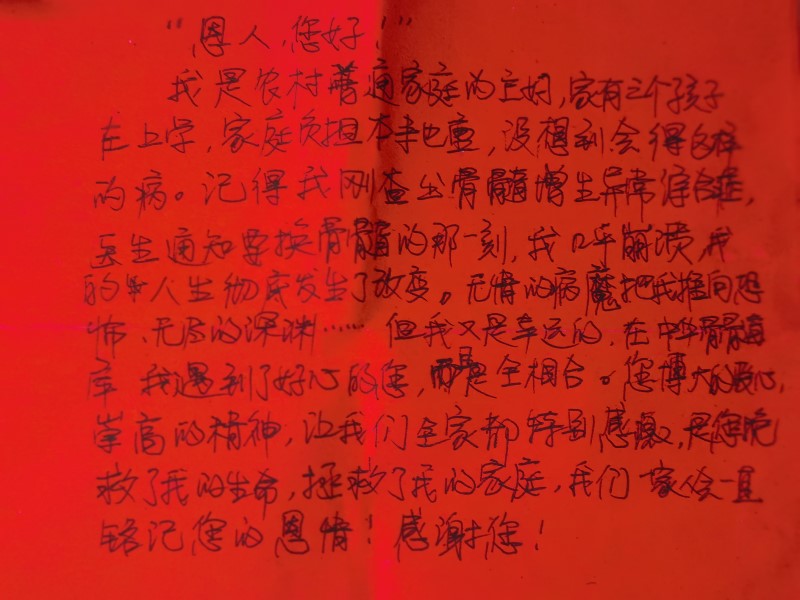 “恩人,您好!”
我是农村普通家庭的主妇,家有三个孩子
在上学,家庭负担本来就重,没想到会得这样
的病。记得我刚查出骨髓增生异常综合症,
医生通知要换骨髓的那一刻,我几乎崩溃,我
的人生彻底发生了改变。无情的病魔把我推向恐
怖、无尽的深渊…… 但我又是幸运的,在中华骨髓
库我遇到了好心的您,而且是全相合。您博大的爱心,
崇高的精神,让我们全家都特别感激,是您挽
救了我的生命,拯救了我的家庭,我们家人会一直
铭记您的恩情!感谢您!